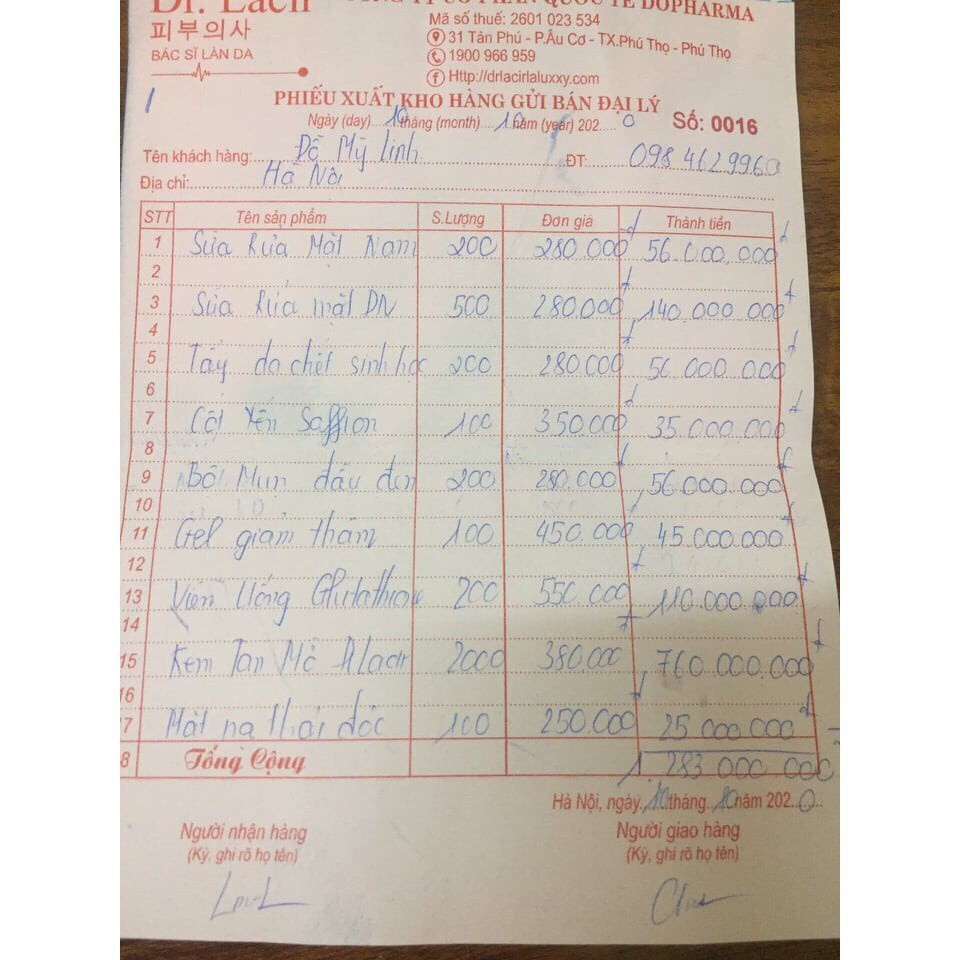 Dr. Lacir
CÔNG TY CỔ PHẦN QUỐC TẾ DOPHARMA
피부의사
BÁC SĨ LÀN DA
Mã số thuế: 2601 023 534
31 Tân Phú - P.Âu Cơ - TX.Phú Thọ - Phú Thọ
1900 966 959
Http://drlacirlaluxxy.com
PHIẾU XUẤT KHO HÀNG GỬI BÁN ĐẠI LÝ
Ngày (day) 10 tháng (month) 10 năm (year) 2020 Số: 0016
Tên khách hàng: Đỗ Mỹ Linh ĐT: 098 4629960
Địa chỉ: Hà Nội
STT Tên sản phẩm S.Lượng Đơn giá Thành tiền
1 Sữa Rửa Mặt Nam 200 280.000đ 56.000.000đ
2
3 Sữa Rửa mặt DN 500 280.000đ 140.000.000đ
4
5 Tẩy da chết sinh học 200 280.000đ 56.000.000đ
6
7 Cốt Yến Saffron 100 350.000đ 35.000.000đ
8
9 Bột Mụn đầu đen 200 280.000đ 56.000.000đ
10
11 Gel giảm thâm 100 450.000đ 45.000.000đ
12
13 Viên Uống Glutathione 200 550.000đ 110.000.000đ
14
15 Kem Tan Mỡ Rlacir 2000 380.000đ 760.000.000đ
16
17 Mặt nạ thải độc 100 250.000đ 25.000.000đ
18 Tổng Cộng 1 283 000 000
Hà Nội, ngày 10 tháng 10 năm 2020
Người nhận hàng Người giao hàng
(Ký, ghi rõ họ tên) (Ký, ghi rõ họ tên)